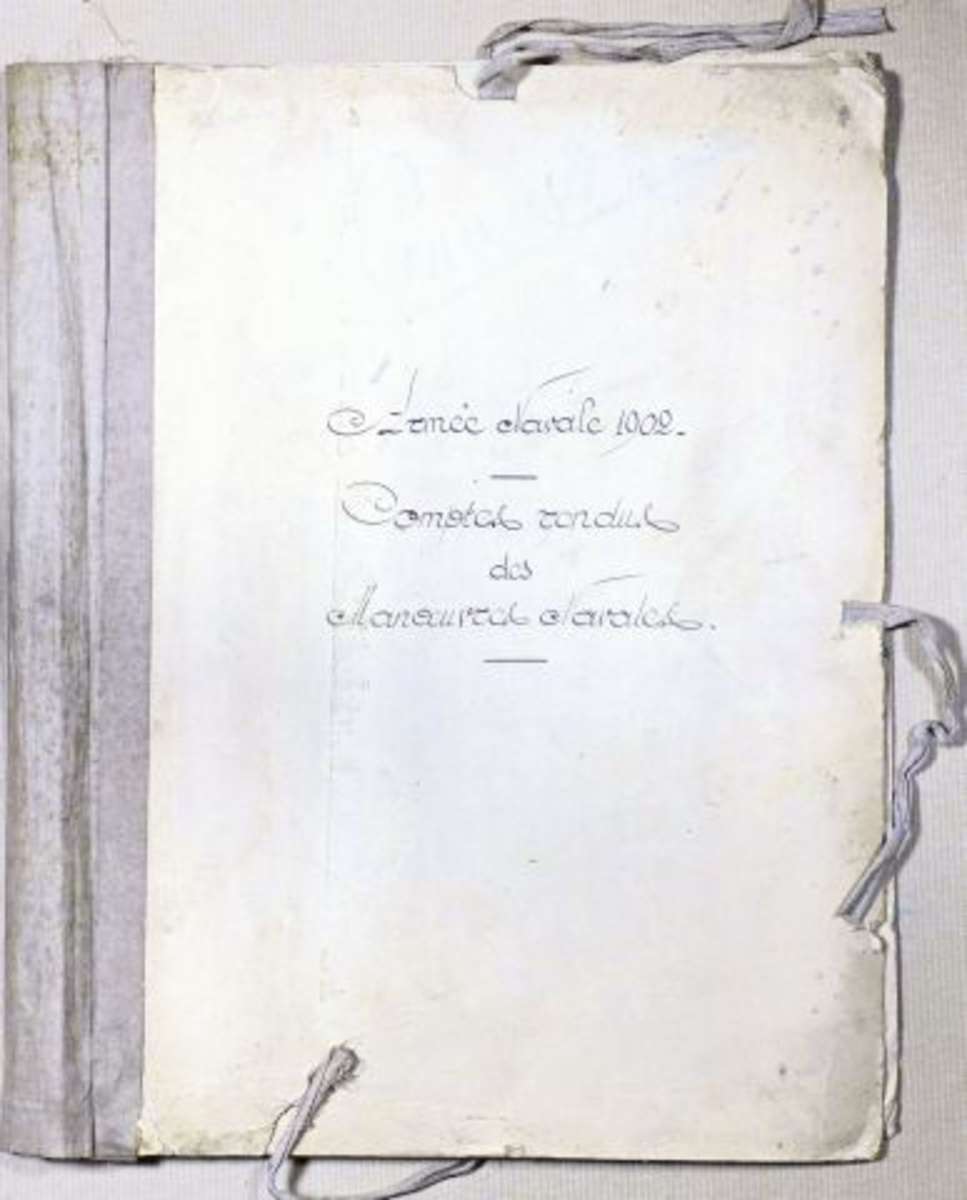 Armée Navale 1902.
Comptes rendus
des
Manœuvres Navales.